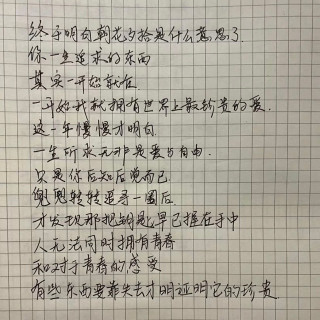 终于明白朝花夕拾是什么意思了.
你一生追求的东西
其实一开始就在
一开始我就拥有世界上最珍贵的爱.
这一年慢慢才明白.
一生所求无非是爱与自由.
只是你后知后觉而已.
兜兜转转追寻一圈后
才发现那把钥匙早已握在手中
人无法同时拥有青春
和对于青春的感受
有些东西要靠失去才明证明它的珍贵